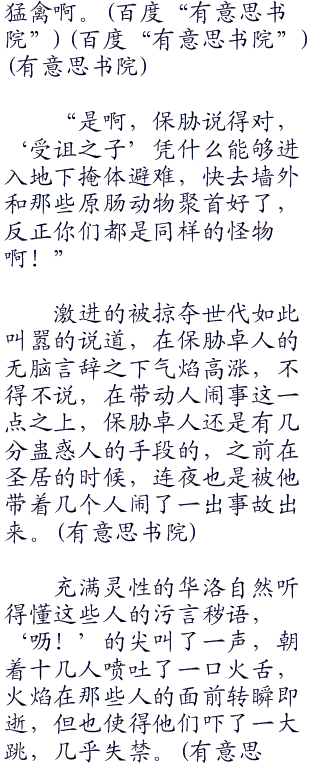 猛禽啊。(百度“有意思书
院”)(百度“有意思书院”)
(有意思书院)
“是啊，保胁说得对，
‘受诅之子’凭什么能够进
入地下掩体避难，快去墙外
和那些原肠动物聚首好了，
反正你们都是同样的怪物
啊！”
激进的被掠夺世代如此
叫嚣的说道，在保胁卓人的
无脑言辞之下气焰高涨，不
得不说，在带动人闹事这一
点之上，保胁卓人还是有几
分蛊惑人的手段的，之前在
圣居的时候，连夜也是被他
带着几个人闹了一出事故出
来。(有意思书院)
充满灵性的华洛自然听
得懂这些人的污言秽语，
‘呖！’的尖叫了一声，朝
着十几人喷吐了一口火舌，
火焰在那些人的面前转瞬即
逝，但也使得他们吓了一大
跳，几乎失禁。(有意思